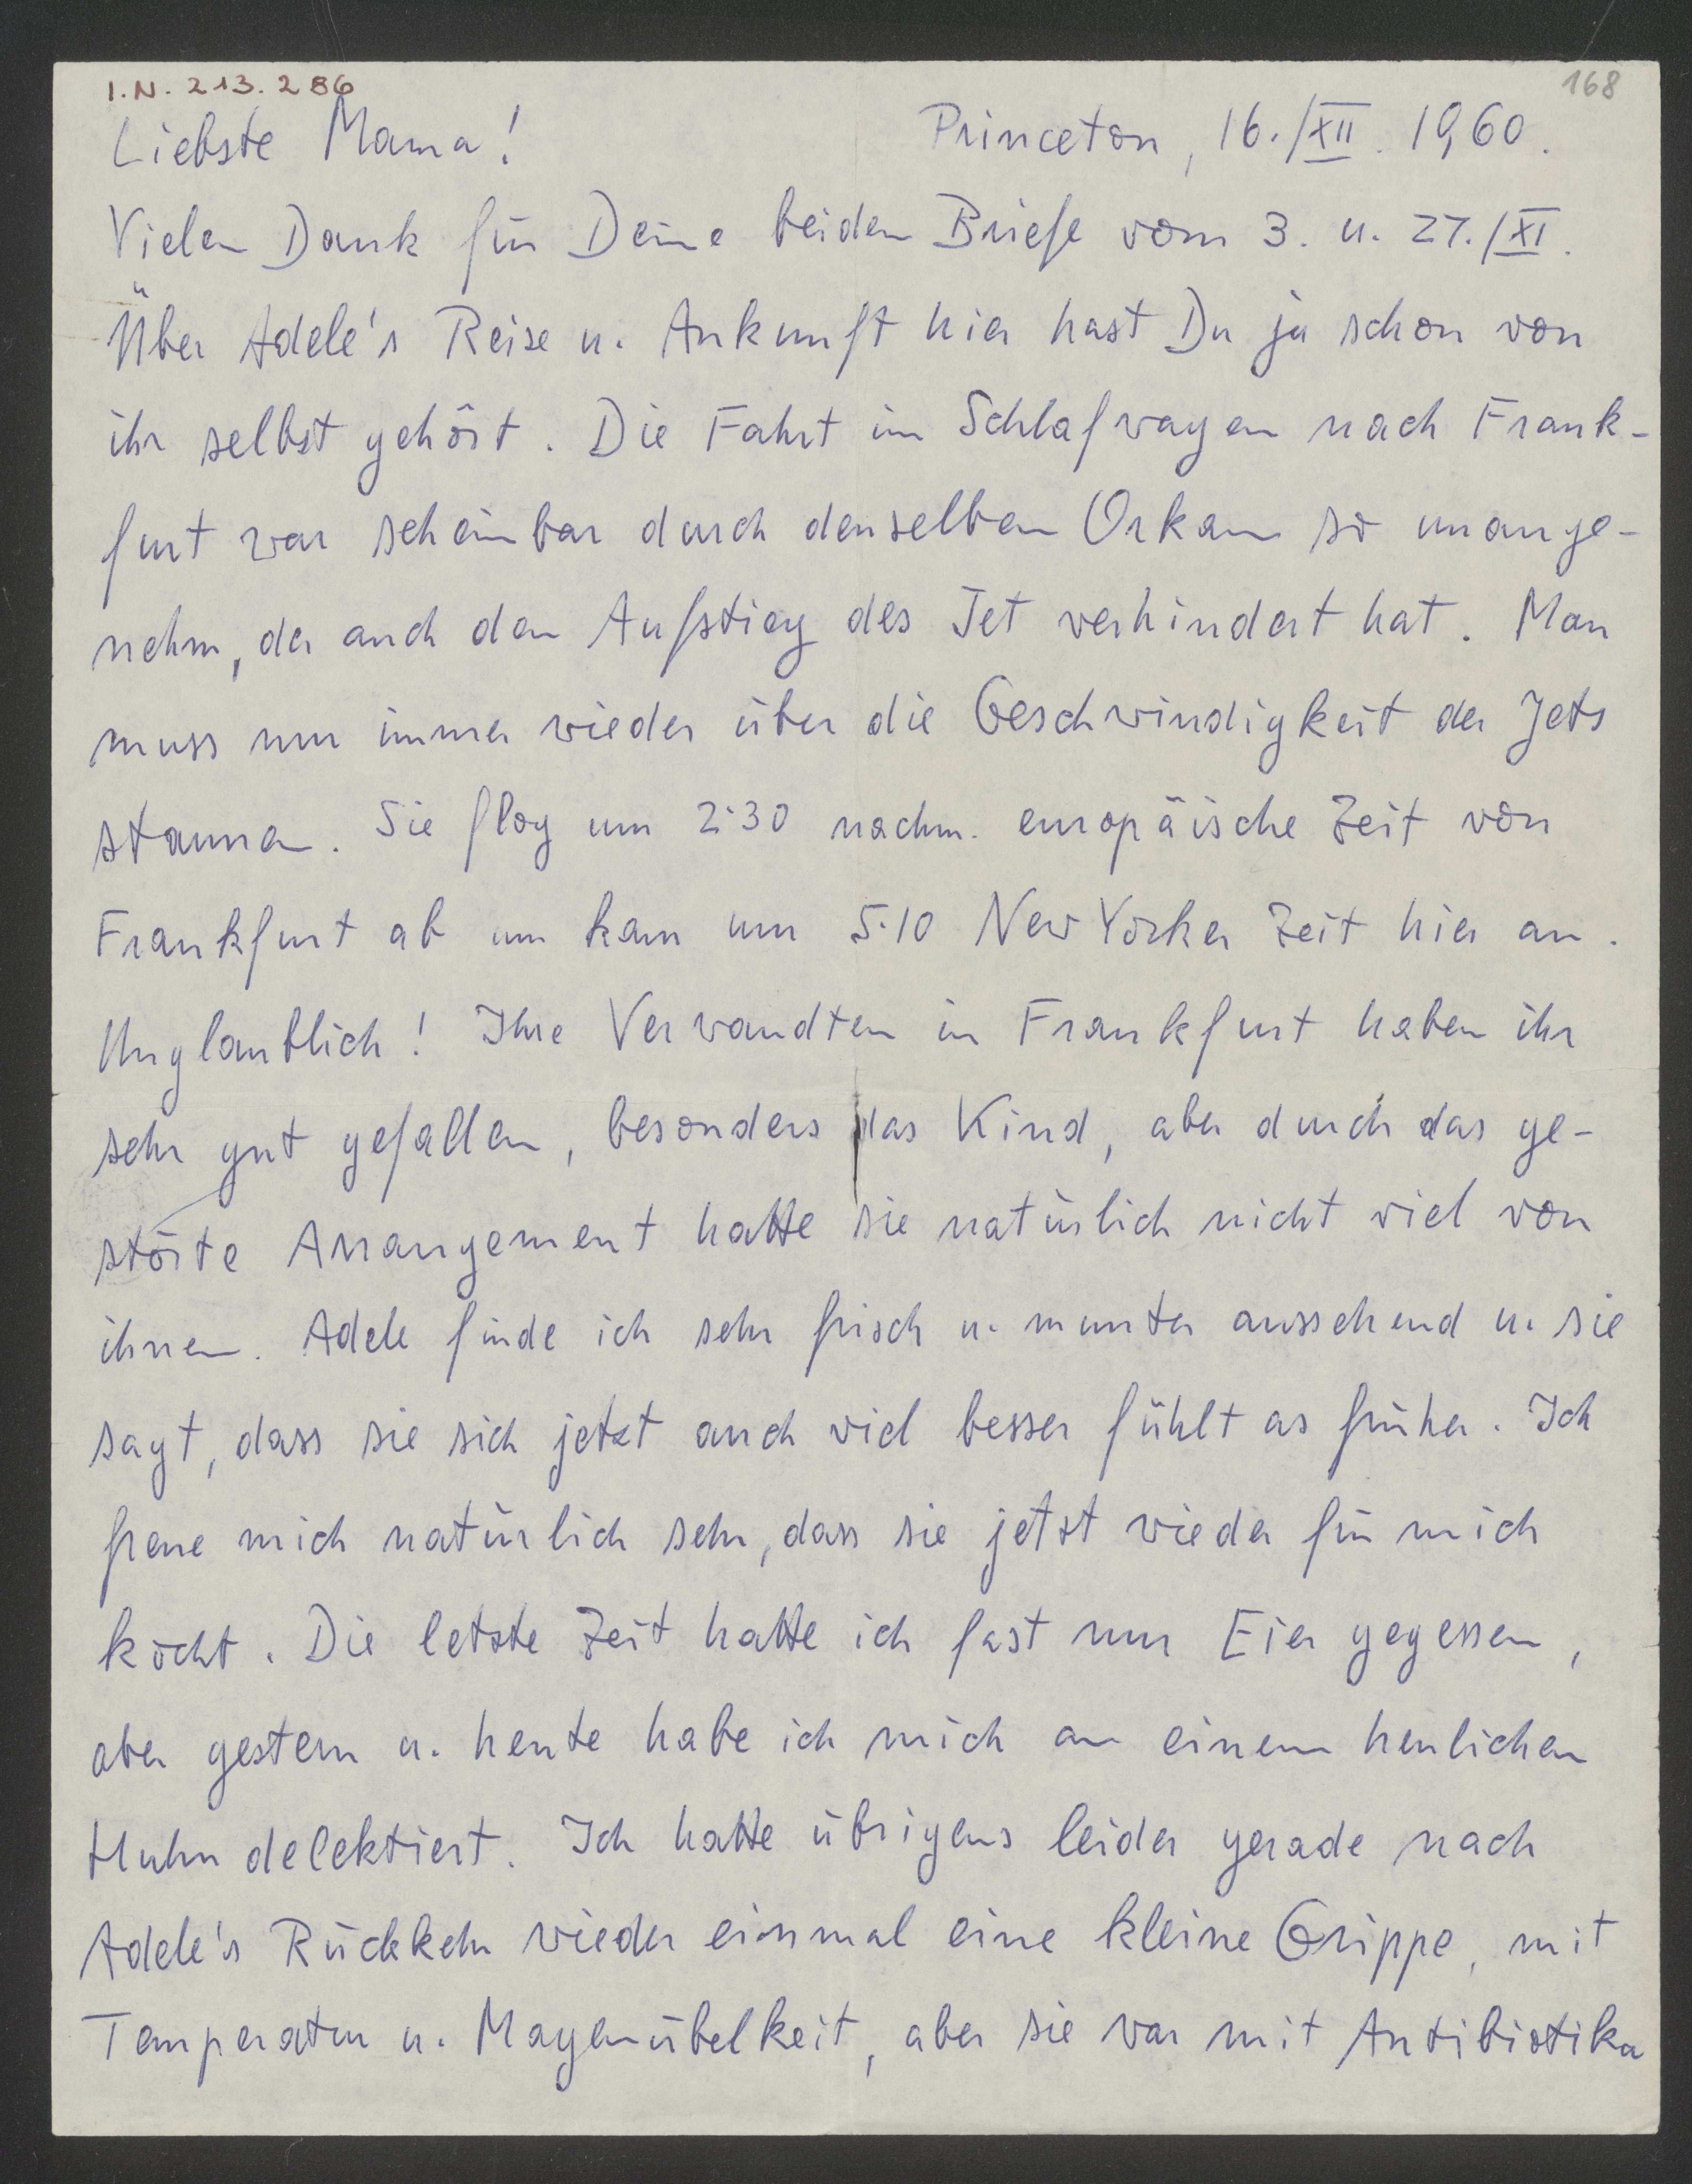 I.N. 213.286
168
Liebste Mama! Princeton, 16./XII. 1960.
Vielen Dank für Deine beiden Briefe vom 3. u. 27./XI.
Über Adele's Reise u. Ankunft hier hast Du ja schon von
ihr selbst gehört. Die Fahrt im Schlafwagen nach Frank-
furt war scheinbar durch denselben Orkan so unange-
nehm, der auch den Aufstieg des Jet verhindert hat. Man
muss nur immer wieder über die Geschwindigkeit der Jets
staunen. Sie flog um 2·30 nachm. europäische Zeit von
Frankfurt ab un kam um 5·10 New Yorker Zeit hier an.
Unglaublich! Ihre Verwandten in Frankfurt haben ihr
sehr gut gefallen, besonders das Kind, aber durch das ge-
störte Arrangement hatte sie natürlich nicht viel von
ihnen. Adele finde ich sehr frisch u. munter aussehend u. sie
sagt, dass sie sich jetzt auch viel besser fühlt as früher. Ich
freue mich natürlich sehr, dass sie jetzt wieder für mich
kocht. Die letzte Zeit hatte ich fast nur Eier gegessen,
aber gestern u. heute habe ich mich an einem herrlichen
Huhn delektiert. Ich hatte übrigens leider gerade nach
Adele's Rückkehr wieder einmal eine kleine Grippe, mit
Temperatur u. Magenübelkeit, aber sie war mit Antibiotika